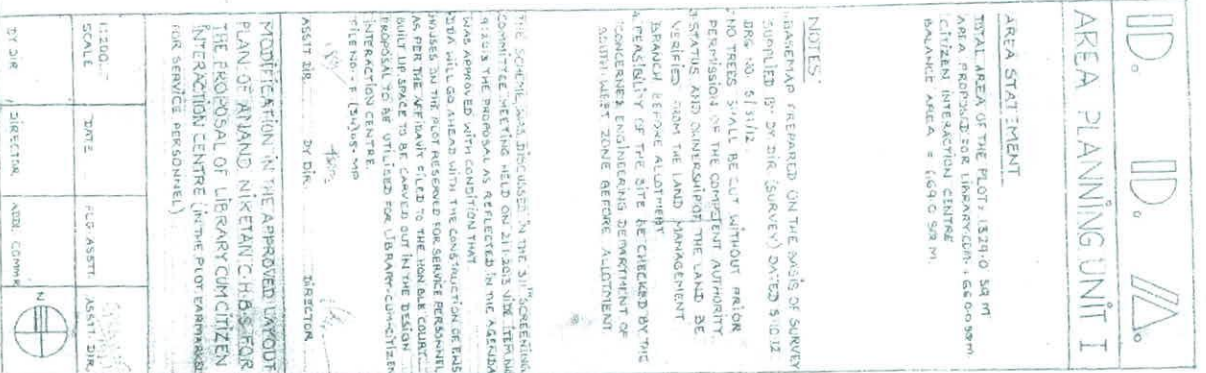 D. D. A.
AREA PLANNING UNIT I
AREA STATEMENT
TOTAL AREA OF THE PLOT = 1329.0 SQ MT
AREA PROPOSED FOR LIBRARY CUM = 660.0 sqm.
CITIZEN INTERACTION CENTRE
BALANCE AREA = 669.0 SQ M.
NOTES:
BASEMAP PREPARED ON THE BASIS OF SURVEY
SUPPLIED BY DY DIR (SURVEY) DATED 5.10.12
DRG NO. 5/31/12.
NO TREES SHALL BE CUT WITHOUT PRIOR
PERMISSION OF THE COMPTENT AUTHORITY.
3. STATUS AND OWNERSHIP OF THE LAND BE
VERIFIED FROM THE LAND MANAGEMENT
BRANCH BEFORE ALLOTMENT
4. FEASIBILITY OF THE SITE BE CHECKED BY THE
CONCERNED ENGINEERING DEPARTMENT OF
SOUTH WEST ZONE BEFORE ALLOTMENT
THE SCHEME WAS DISCUSSED IN THE SCREENING
COMMITTEE MEETING HELD ON 21.1.2013 VIDE ITEM NO
9:2013 THE PROPOSAL AS REFLECTED IN THE AGENDA
WAS APPROVED WITH CONDITION THAT
DDA WILL GO AHEAD WITH THE CONSTRUCTION OF EWS
HOUSES ON THE PLOT RESERVED FOR SERVICE PERSONNEL
AS PER THE AFFIDAVIT FILED TO THE HON'BLE COURT.
BUILT UP SPACE TO BE CARVED OUT IN THE DESIGN
PROPOSAL TO BE UTILISED FOR LIBRARY-CUM-CITIZEN
INTERACTION CENTRE.
FILE NO - F MP
ASSTT DIR. DY DIR. DIRECTOR
MODIFICATION IN THE APPROVED LAYOUT
PLAN OF ANAND NIKETAN C.H.B.S FOR
THE PROPOSAL OF LIBRARY CUM CITIZEN
INTERACTION CENTRE (IN THE PLOT EARMARKED
FOR SERVICE PERSONNEL)
1:200
SCALE DATE PLG ASSTT. ASSTT DIR.
DY DIR DIRECTOR ADDL COMMR N